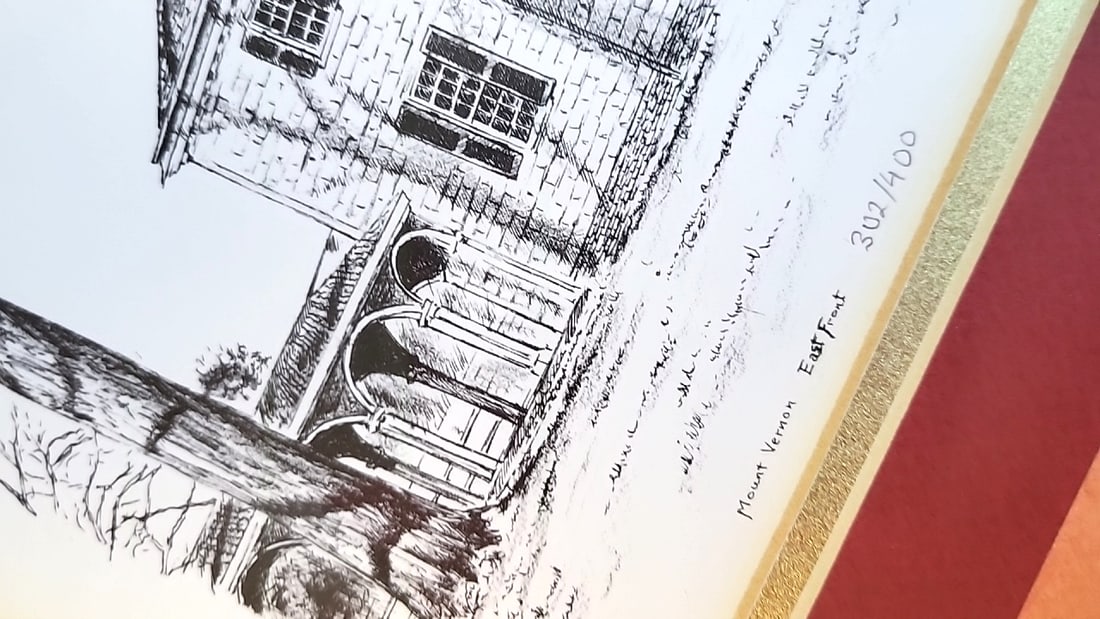 Mount Vernon East Front 302/400